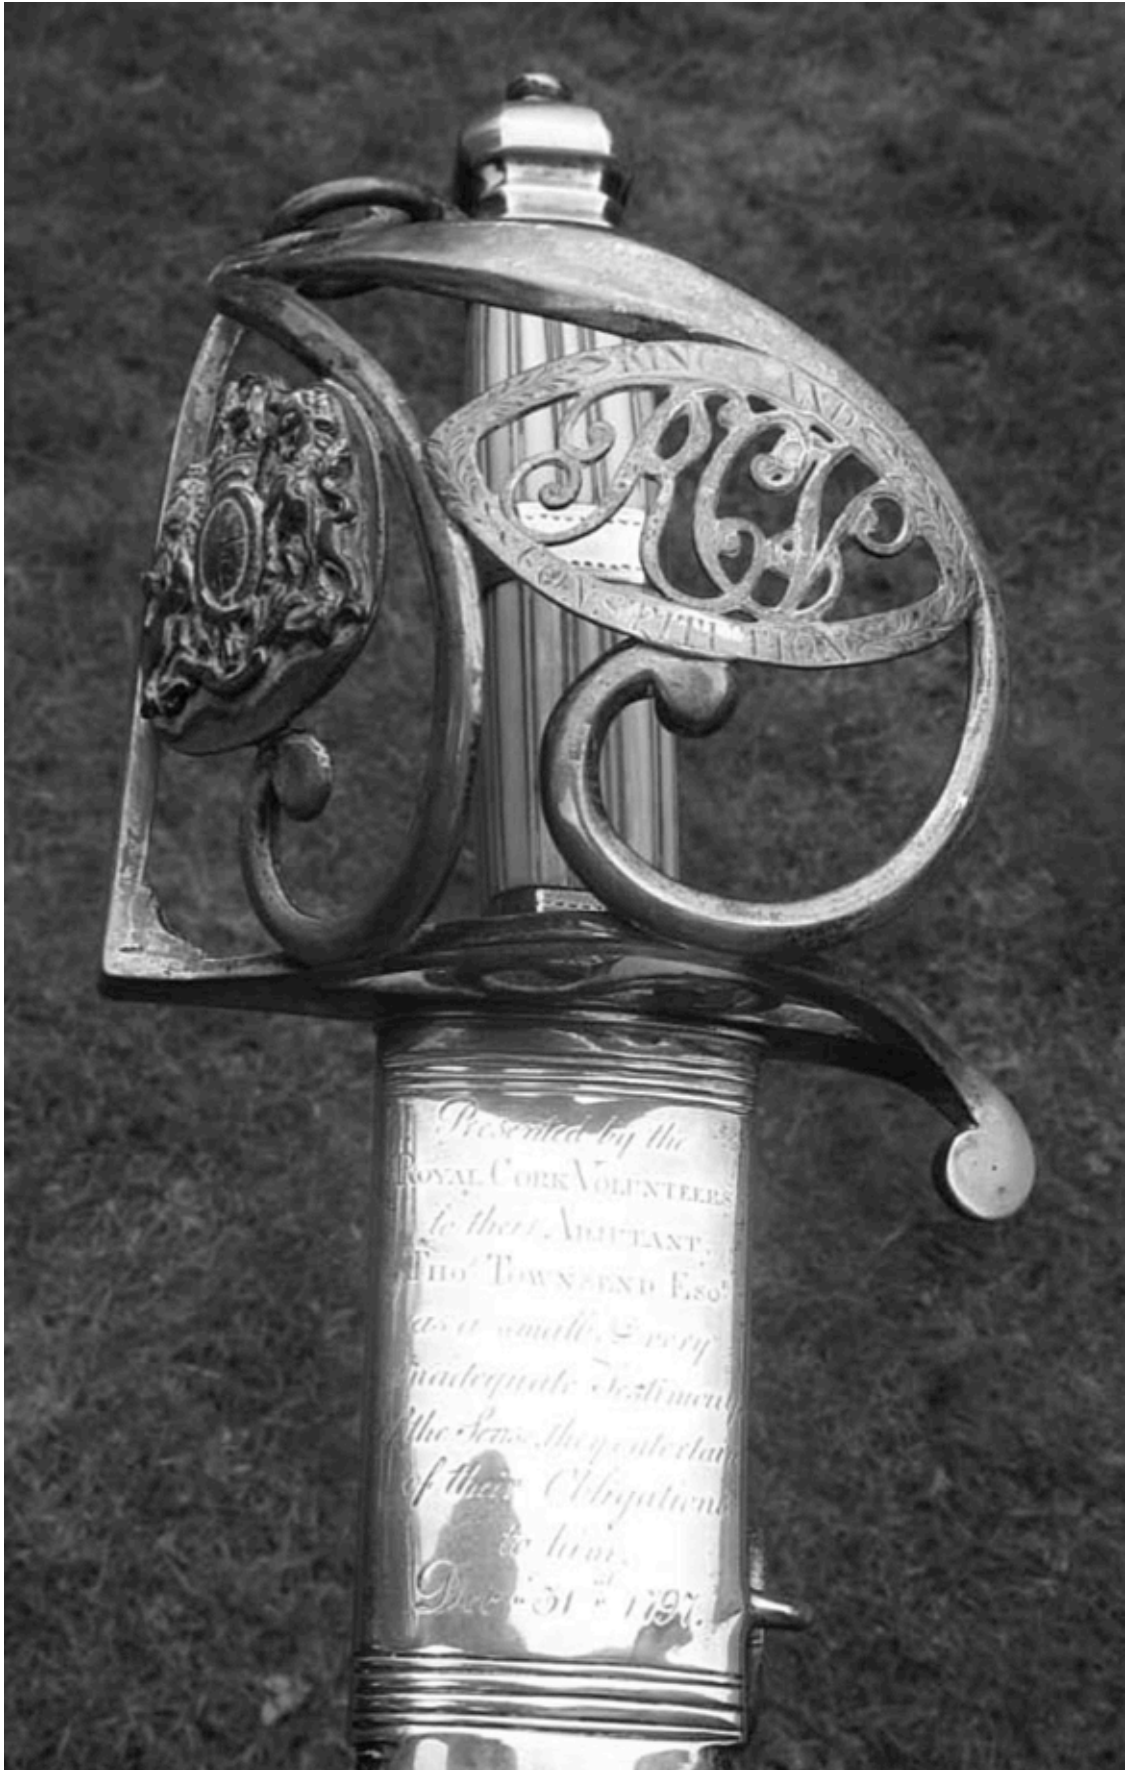 KING AND
RCV
CONSTITUTION
Presented by the
ROYAL CORK VOLUNTEERS
to their ADJUTANT,
THOS. TOWNSEND ESQR.
as a small & very
inadequate Testimony
of the Sense they entertain
of their Obligations
to him.
Decr. 31st 1797.